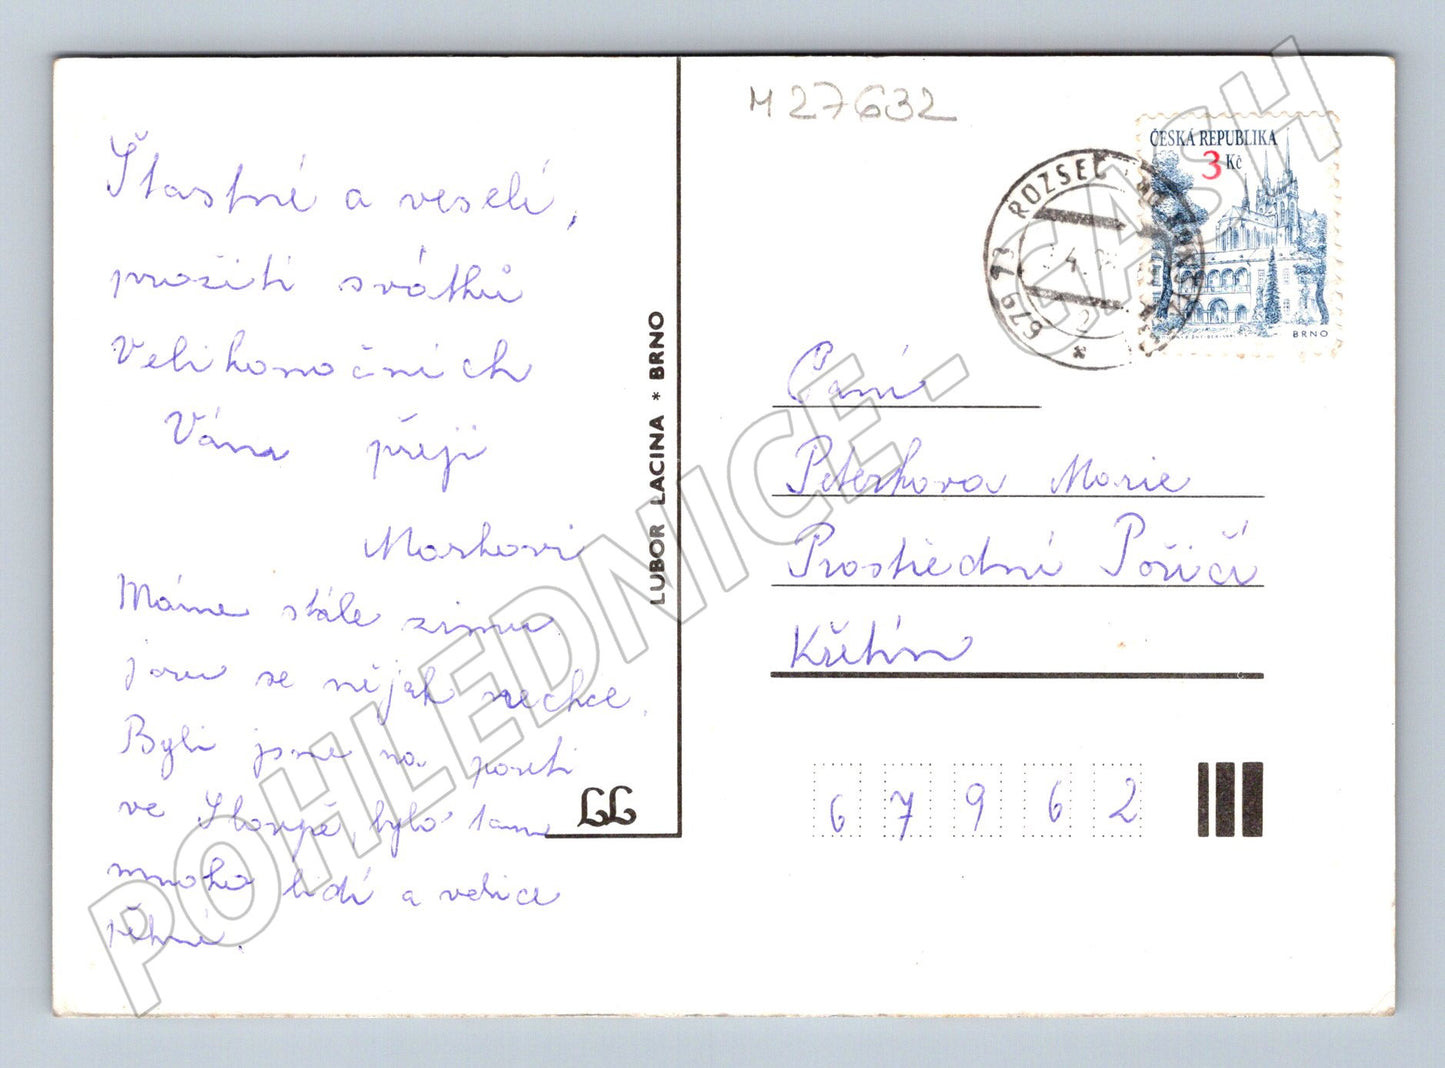 Šťastné a veselé,
prožití svátků
Velikonočních
Vám přeji
Markovi
Máme stále zimu
jaru se nějak nechce.
Byli jsme na pouti
ve Sloupě, bylo tam
mnoho lidí a velice
pěkné.
LUBOR LACINA * BRNO
LL
M 27632
679 73 ROZSEČ
ČESKÁ REPUBLIKA
3 Kč
BRNO
Paní
Peterkova Marie
Prostřední Poříčí
Křetín
67962
POHLEDNICE - GASH